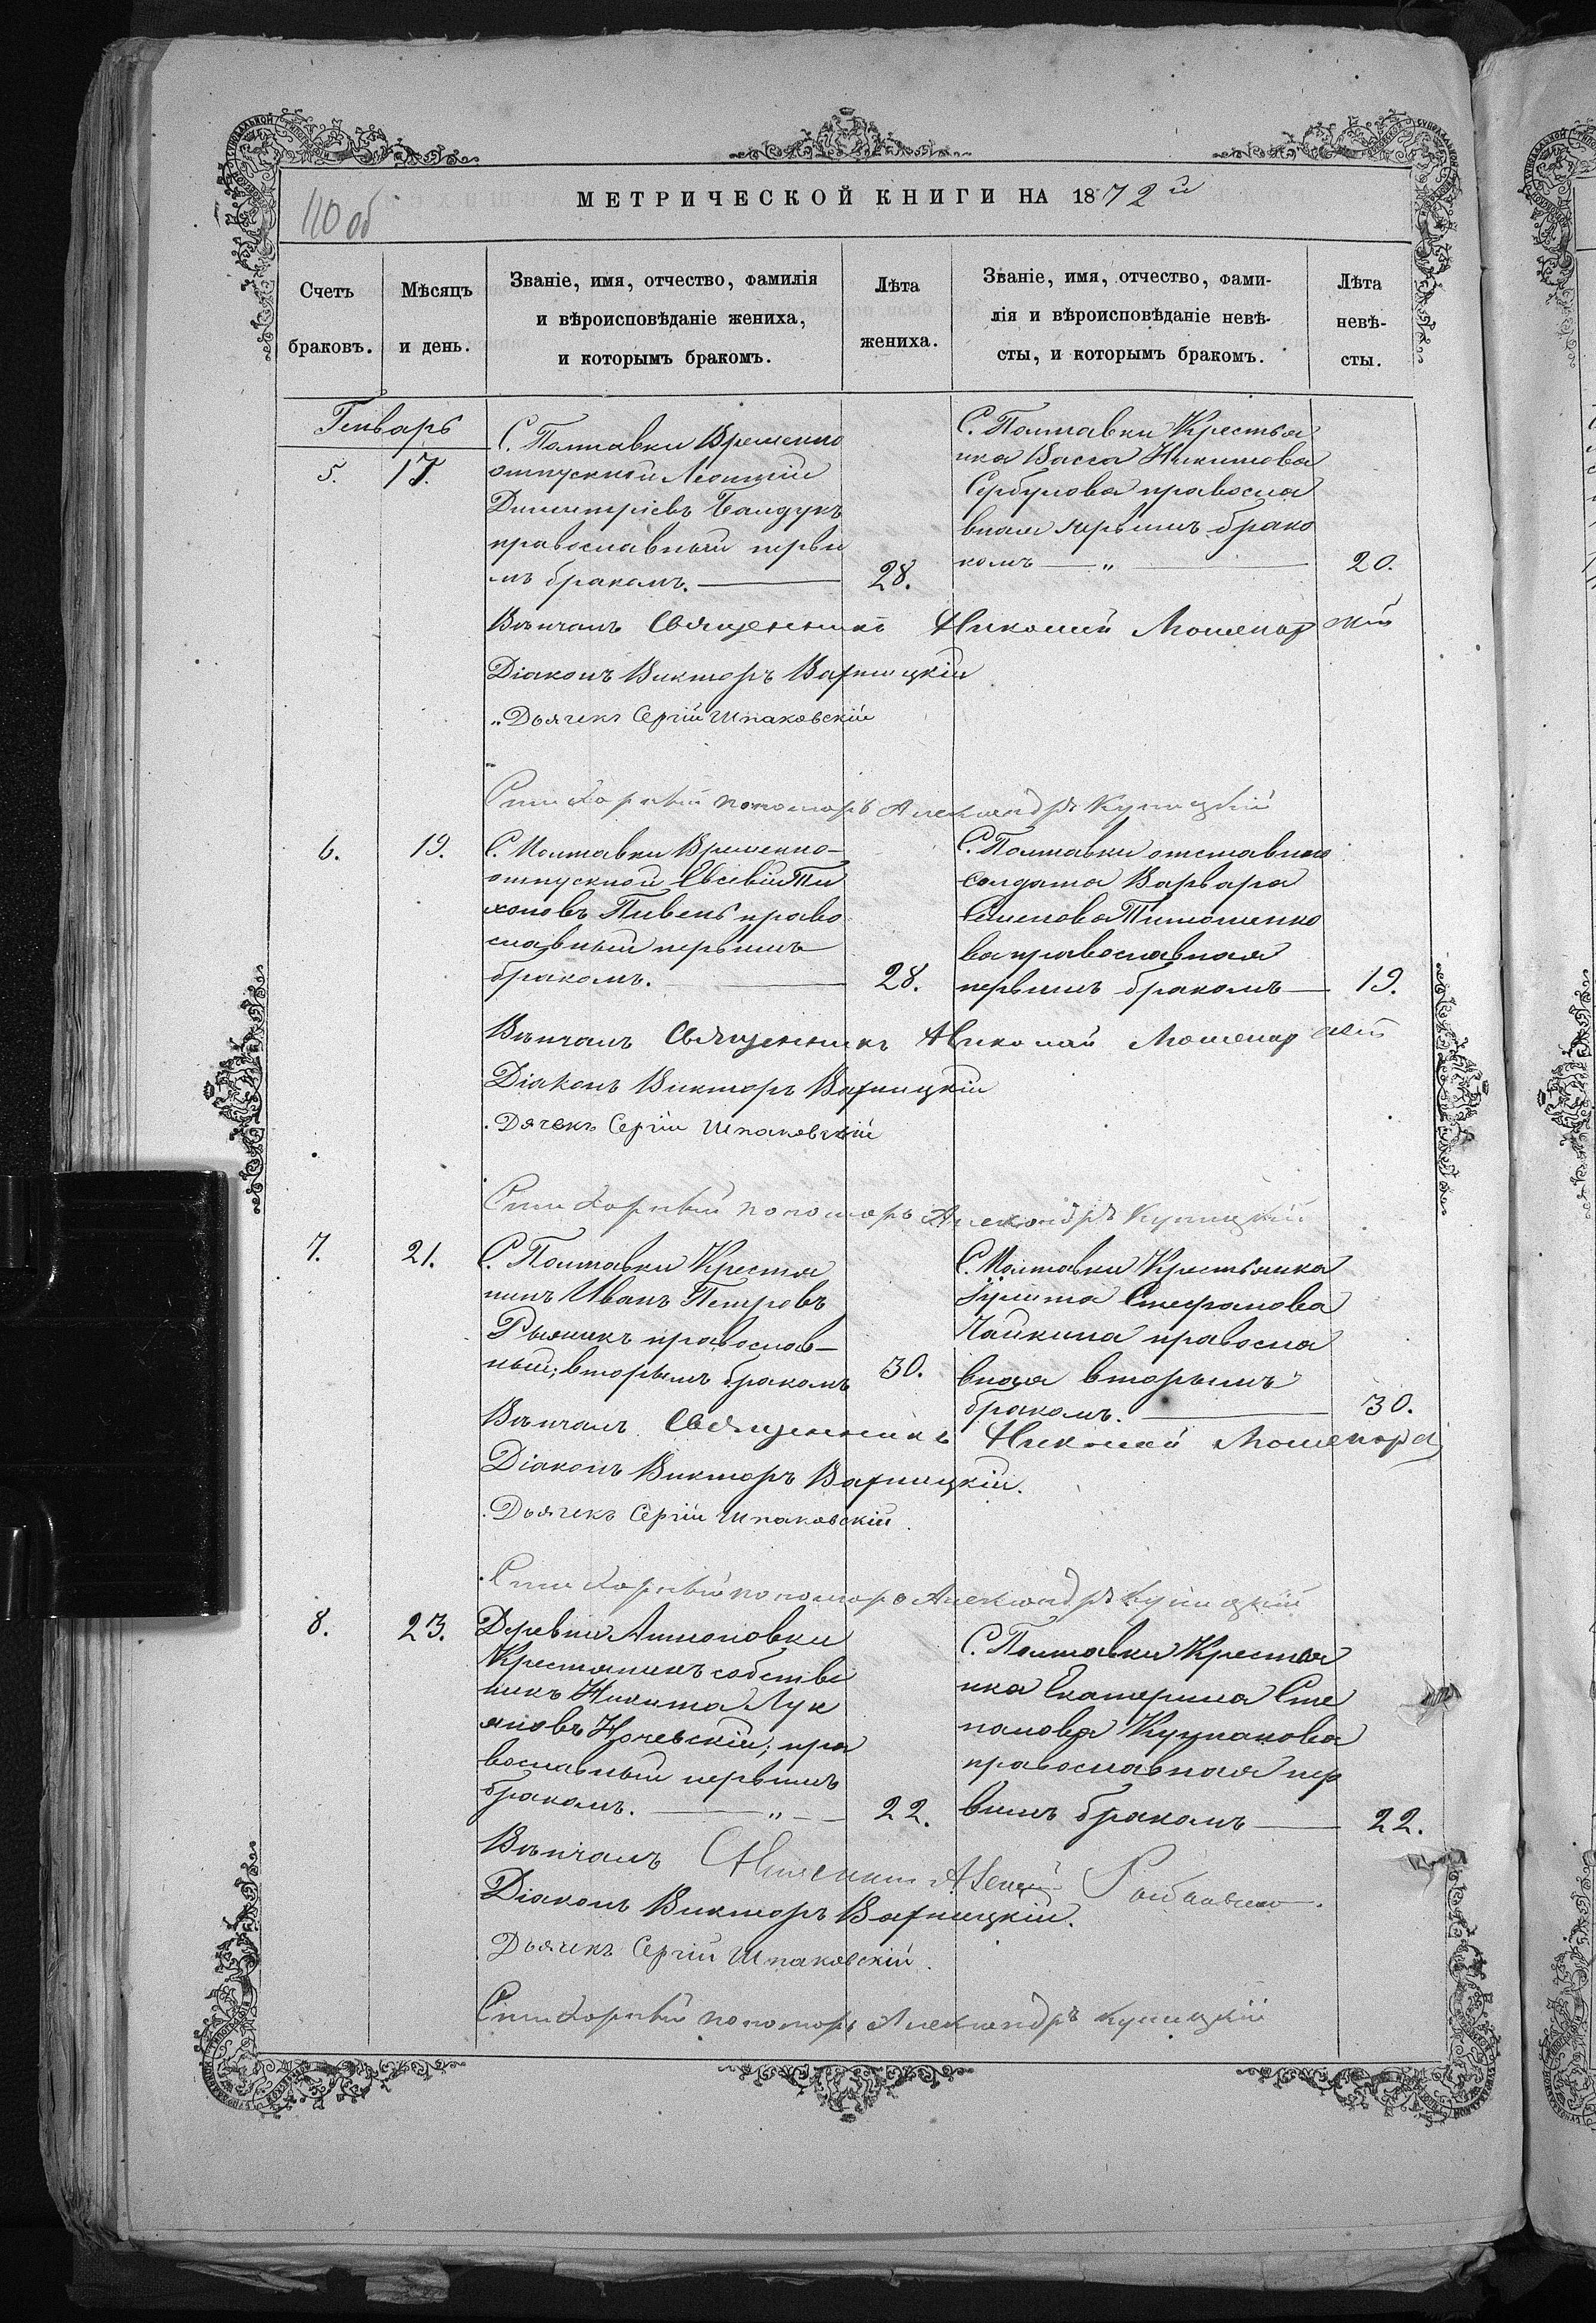 110 об
МЕТРИЧЕСКОЙ КНИГИ НА 1872й
Счетъ браковъ.
Мѣсяцъ и день.
Званіе, имя, отчество, фамилія
и вѣроисповѣданіе жениха,
и которымъ бракомъ.
Лѣта жениха.
Званіе, имя, отчество, фами-
лія и вѣроисповѣданіе невѣ-
сты, и которымъ бракомъ.
Лѣта невѣ-
сты.
Генварь
5. 17.
С. Полтавки Временно
отпускной Леонтій
Димитріевъ Балдукъ
православный первы
мъ бракомъ. 28.
С. Полтавки Крестья
нка Васса Никитова
Сербулова правосла
вная первымъ брако
комъ 20.
Вѣнчалъ Священникъ Николай
Діаконъ Викторъ Варницкій
Дьячекъ Сергій Шпаковскій
Стихарный пономарь Александръ Куницкій
6. 19.
С. Полтавки Временно-
отпускной Евсевій Ти
хоновъ Пивень право
славный первымъ
бракомъ. 28.
С. Полтавки отставнаго
солдата Варвара
Семенова Тимошенко
ва православная
первымъ бракомъ 19.
Вѣнчалъ Священникъ Николай
Діаконъ Викторъ Варницкій
Дячекъ Сергій Шпаковскій
Стихарный пономарь Александръ Куницкій
7. 21.
С. Полтавки Крестья
нинъ Иванъ Петровъ
православ-
ный; вторымъ бракомъ 30.
С. Полтавки Крестьянка
Іулита Стефанова
Чайкина правосла
вная вторымъ
бракомъ. 30.
Вѣнчалъ Священникъ Николай
Діаконъ Викторъ Варницкій.
Дьячекъ Сергій Шпаковскій
Стихарный пономарь Александръ Куницкій
8. 23.
Деревни Антоновки
Крестянинъ собстве
никъ Никита Лук
яновъ пра
вославный первымъ
бракомъ. 22.
С. Полтавки Крестья
нка Екатерина Сте
панова
православная пер
вымъ бракомъ 22.
Вѣнчалъ
Діаконъ Викторъ Варницкій.
Дьячекъ Сергій Шпаковскій.
Стихарный пономарь Александръ Куницкій